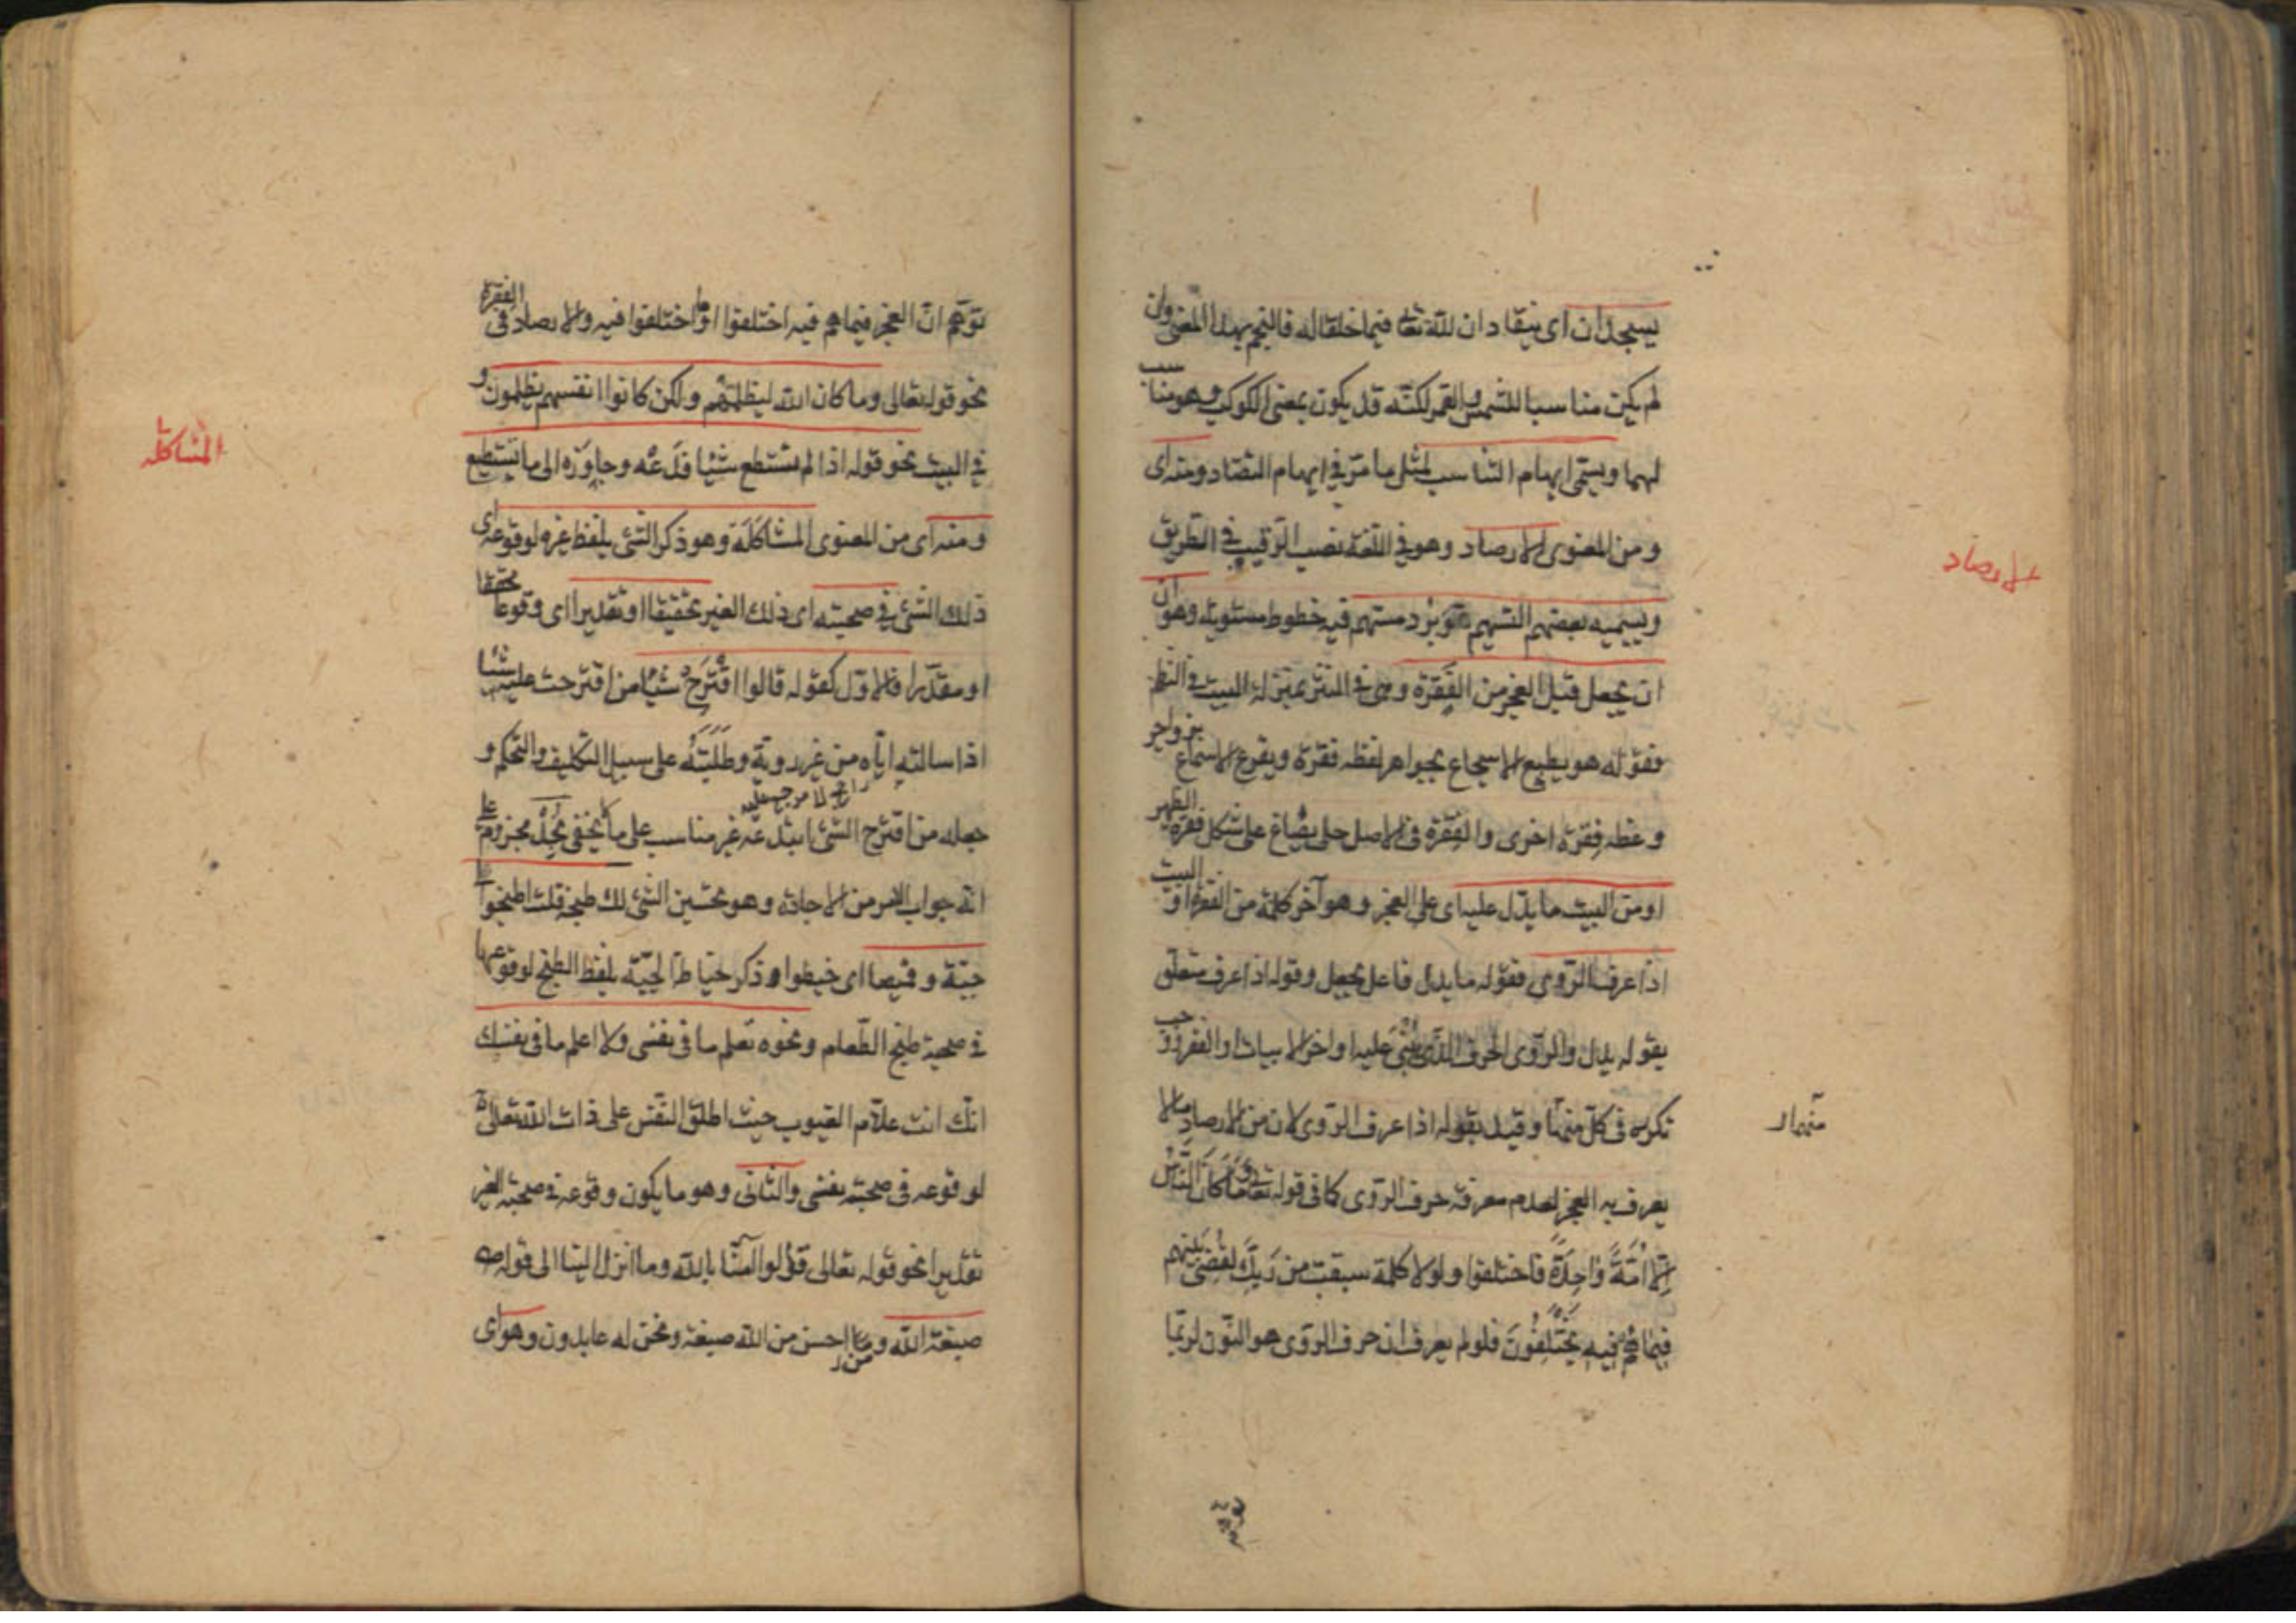 يسجدان اى ينقادان لله تعالى فيما خلقا له فالنجم بهذا المعنى وان
لم يكن مناسبا للشمس والقمر لكنه قد يكون بمعنى الكوكب وهو مناسب
لهما ويسمى ايهام التناسب لمثل ما مر فى ايهام التضاد ومنه اى
ومن المعنوى الارصاد وهو فى اللغة نصب الرقيب فى الطريق
الارصاد
ويسميه بعضهم التسهيم برد مسهم فيه خطوط مستوية وهو
ان يجعل قبل العجز من الفقرة وهى فى النثر بمنزلة البيت فى النظم
فقوله هو يطبع الاسجاع بجواهر لفظه فقرة ويقرع الاسماع بزواجر
وعظه فِقرة اخرى والفقرة فى الاصل حلى يصاغ على شكل فقرة الظهر
او من البيت ما يدل عليه اى على العجز وهو آخر كلمة من الفقرة او البيت
اذا عرف الروى فقوله ما يدل فاعل يجعل وقوله اذا عرف متعلق
بقوله يدل والروى الحرف الذى يُبْنى عليه اواخر الابيات او الفقر ووجب
تكرره فى كل منهما وقيد بقوله اذا عرف الروى لان من الارصاد ما لا
منهمار
يعرف به العجز لعدم معرفة حرف الروى كما فى قوله تعالى وَمَا كَانَ النَّاسُ
اِلّا اُمَّةً وَاحِدَةً فاختلفوا ولولا كلمة سبقت من رَبِّكَ لقُضِىَ بينهم
فيما هُمْ فِيهِ يَخْتَلِفُونَ فلو لم يعرف ان حرف الروى هو النون لربما
توهم
توهم ان العجز فيما هم فيه اختلفوا او اختلفوا فيه والارصاد فى الفقرة
نحو قوله تعالى وما كان الله ليظلمهم ولكن كانوا انفسهم يظلمون و
فى البيت نحو قوله اذا لم تستطع شيئا فدعه وجاوزه الى ما تستطيع
المشاكلة
ومنه اى من المعنوى المشاكلة وهو ذكر الشئ بلفظ غيره لوقوعه اى
ذلك الشئ فى صحبته اى ذلك الغير تحقيقا او تقديرا اى وقوعا محققا
او مقدرا فالاول كقوله قالوا اقْتَرِحْ شيئا من اقترحت عليه شيئا
اذا سالته اياه من غير روية وطَلَبْتَهُ على سبيل التكليف والتحكم و
جعله من اقترح الشئ ابتدعه غير مناسب على ما لا يخفى نُجِدْ مجزوم على
انه جواب الامر من الاجادة وهو تحسين الشئ لك طبخه قلت اطبخوا لى
جبة وقميصا اى خيطوا وذكر خياطة الجبة بلفظ الطبخ لوقوعها
فى صحبة طبخ الطعام ونحوه تعلم ما فى نفسى ولا اعلم ما فى نفسك
انك انت علام الغيوب حيث اطلق النفس على ذات الله تعالى
لوقوعه فى صحبة نفسى والثانى وهو ما يكون وقوعه فى صحبة الغير
تقديرا نحو قوله تعالى قولوا آمنا بالله وما انزل الينا الى قوله
صبغة الله ومن احسن من الله صبغة ونحن له عابدون وهو اى